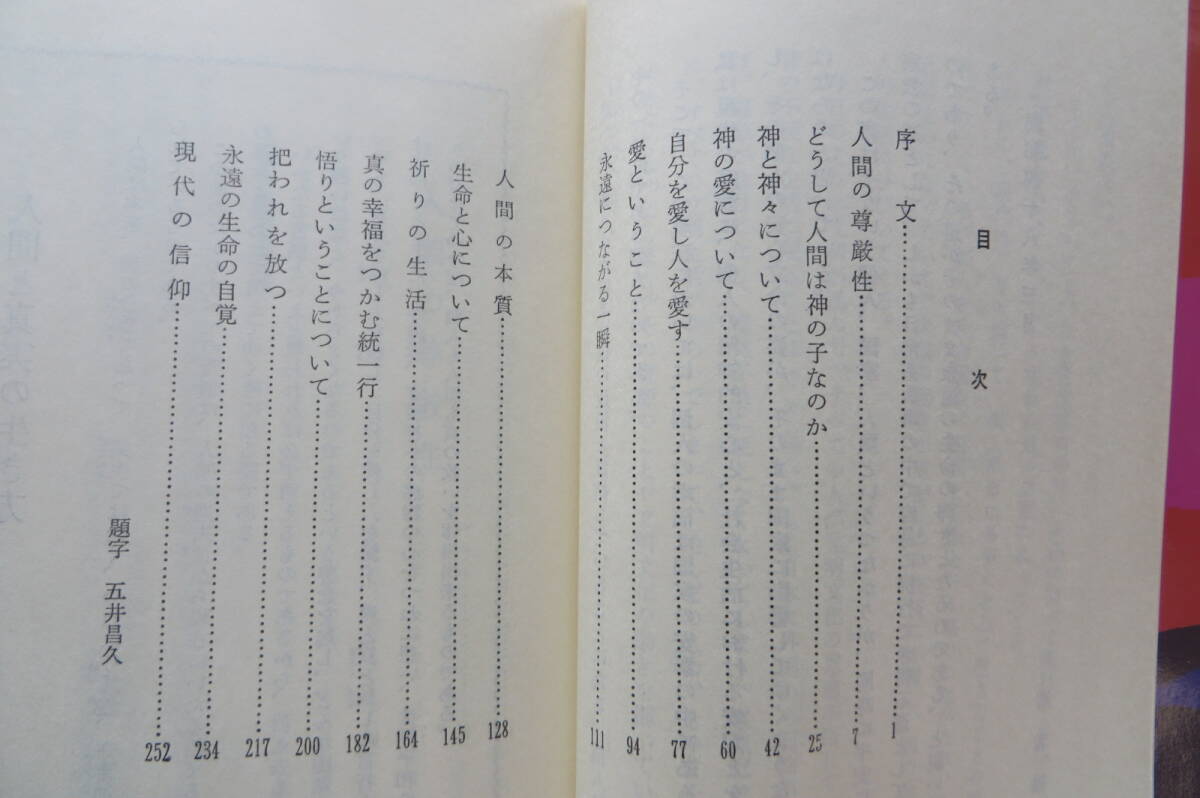 目次
序文 1
人間の尊厳性 7
どうして人間は神の子なのか 25
神と神々について 42
神の愛について 60
自分を愛し人を愛す 77
愛ということ 94
永遠につながる一瞬 111
人間の本質 128
生命と心について 145
祈りの生活 164
真の幸福をつかむ統一行 182
悟りということについて 200
把われを放つ 217
永遠の生命の自覚 234
現代の信仰 252
題字 五井昌久